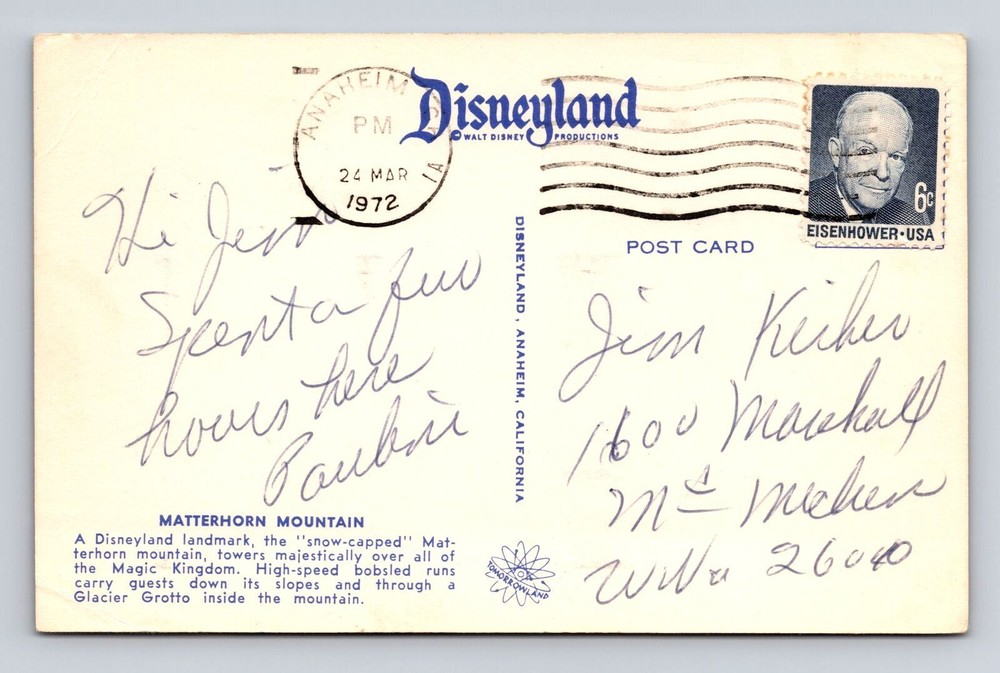 ANAHEIM CA
PM
24 MAR
1972
Disneyland
© WALT DISNEY PRODUCTIONS
6c
EISENHOWER·USA
POST CARD
DISNEYLAND, ANAHEIM, CALIFORNIA
Hi Jim
Spent a few
hours here
Pauline
MATTERHORN MOUNTAIN
A Disneyland landmark, the "snow-capped" Mat-
terhorn mountain, towers majestically over all of
the Magic Kingdom. High-speed bobsled runs
carry guests down its slopes and through a
Glacier Grotto inside the mountain.
TOMORROWLAND
Jim
1600 Marshall
Mc Mechen
W Va 26040